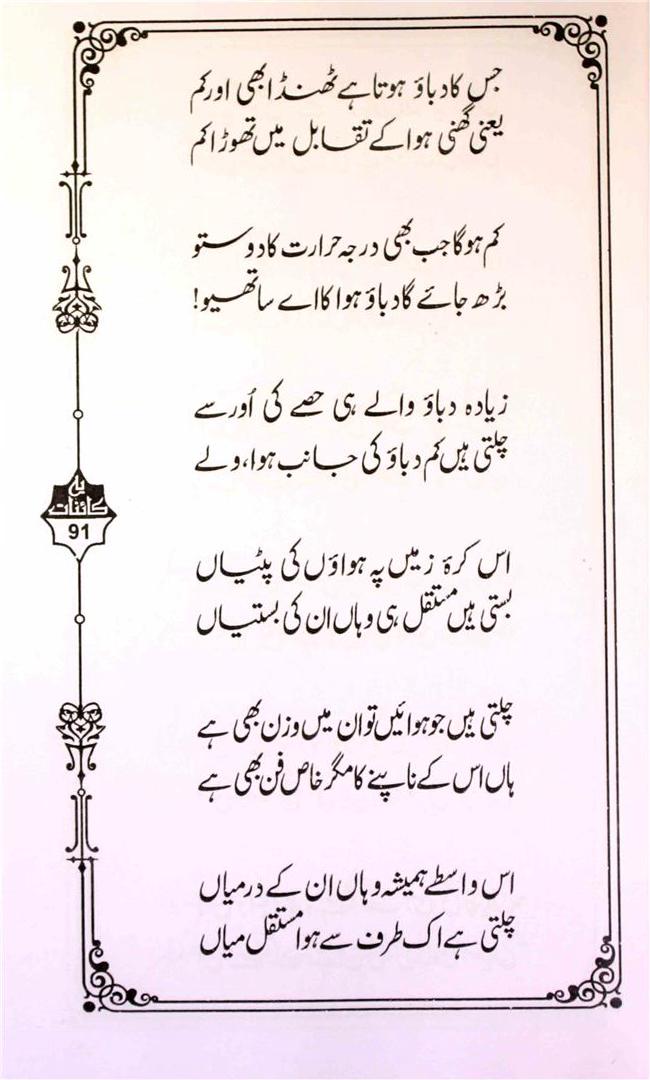 جس کا دباؤ ہوتا ہے ٹھنڈا بھی اور کم
یعنی گھنی ہوا کے تقابل میں تھوڑا کم
کم ہوگا جب بھی درجہ حرارت کا دوستو
بڑھ جائے گا دباؤ ہوا کا اے ساتھیو!
زیادہ دباؤ والے ہی حصے کی اُور سے
چلتی ہیں کم دباؤ کی جانب ہوا، ولے
اس کرۂ زمیں پہ ہواؤں کی پٹیاں
بستی ہیں مستقل ہی وہاں ان کی بستیاں
چلتی ہیں جو ہوائیں تو ان میں وزن بھی ہے
ہاں اس کے ناپنے کا مگر خاص فن بھی ہے
اس واسطے ہمیشہ وہاں ان کے درمیاں
چلتی ہے اک طرف سے ہوا مستقل میاں
کائنات
91